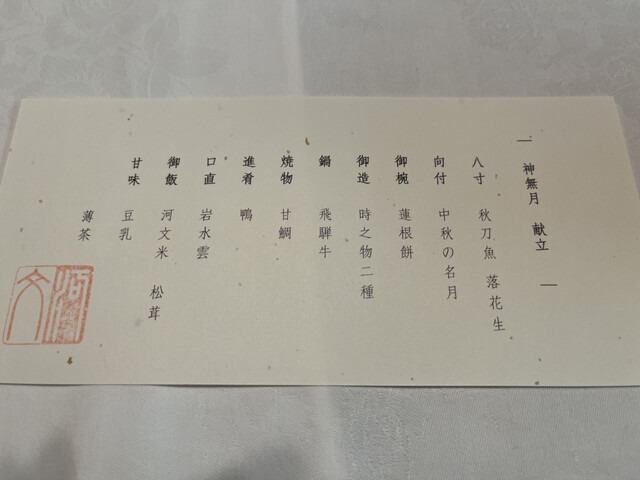 ― 神無月 献立 ―
八寸 秋刀魚 落花生
向付 中秋の名月
御椀 蓮根餅
御造 時之物二種
鍋 飛騨牛
焼物 甘鯛
進肴 鴨
口直 岩水雲
御飯 河文米 松茸
甘味 豆乳
薄茶
河文